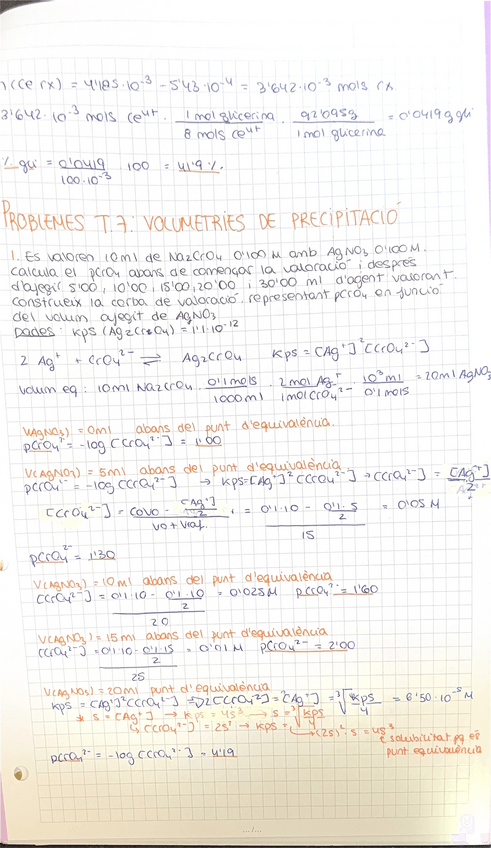 n(Ce rx) = 4'185·10⁻³ − 5'43·10⁻⁴ = 3'642·10⁻³ mols rx
3'642·10⁻³ mols Ce⁴⁺ · 1 mol glicerina / 8 mols Ce⁴⁺ · 92'095g / 1 mol glicerina = 0'0419 g gli
% gli = 0'0419 / 100·10⁻³ · 100 = 41'9 %
PROBLEMES T.7: VOLUMETRIES DE PRECIPITACIÓ
1. Es valoren 10ml de Na₂CrO₄ 0'100 M amb AgNO₃ 0'100M.
calcula el pCrO₄ abans de començar la valoració i després
d'afegir 5'00, 10'00, 15'00, 20'00 i 30'00 ml d'agent valorant.
construeix la corba de valoració representant pCrO₄ en funció
del volum afegit de AgNO₃
Dades: Kps (Ag₂CrO₄) = 1'1·10⁻¹²
2 Ag⁺ + CrO₄²⁻ ⇌ Ag₂CrO₄ Kps = [Ag⁺]²[CrO₄²⁻]
Volum eq: 10ml Na₂CrO₄ · 0'1 mols / 1000 ml · 2 mol Ag⁺ / 1 mol CrO₄²⁻ · 10³ ml / 0'1 mols = 20ml AgNO₃
V(AgNO₃) = 0ml abans del punt d'equivalència.
pCrO₄²⁻ = -log [CrO₄²⁻] = 1'00
V(AgNO₃) = 5ml abans del punt d'equivalència
pCrO₄²⁻ = -log [CrO₄²⁻] → Kps = [Ag⁺]²[CrO₄²⁻] → [CrO₄²⁻] = [Ag⁺] / 2
[CrO₄²⁻] = C₀V₀ − [Ag⁺] / 2 / V₀ + Vaf = 0'1·10 − 0'1·5 / 2 / 15 = 0'05 M
pCrO₄²⁻ = 1'30
V(AgNO₃) = 10ml abans del punt d'equivalència
[CrO₄²⁻] = 0'1·10 − 0'1·10 / 2 / 20 = 0'025M pCrO₄²⁻ = 1'60
V(AgNO₃) = 15ml abans del punt d'equivalència
[CrO₄²⁻] = 0'1·10 − 0'1·15 / 2 / 25 = 0'01 M pCrO₄²⁻ = 2'00
V(AgNO₃) = 20ml punt d'equivalència
Kps = [Ag⁺]²[CrO₄²⁻] = 2[CrO₄²⁻] = [Ag⁺] = ∛Kps / 4 = 6'50·10⁻⁵ M
* s = [Ag⁺] → Kps = 4s³ → s = ∛Kps / 4
↳ [CrO₄²⁻] = 2s² → Kps = (2s)²·s = 4s³
solubilitat pq és
punt equivalència
pCrO₄²⁻ = -log [CrO₄²⁻] = 4'19
.../...